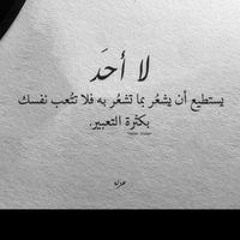 لا أحَد
يستطيع أن يشعُر بما تشعُر به فلا تتُعب نفسك
بكثرة التعبير.